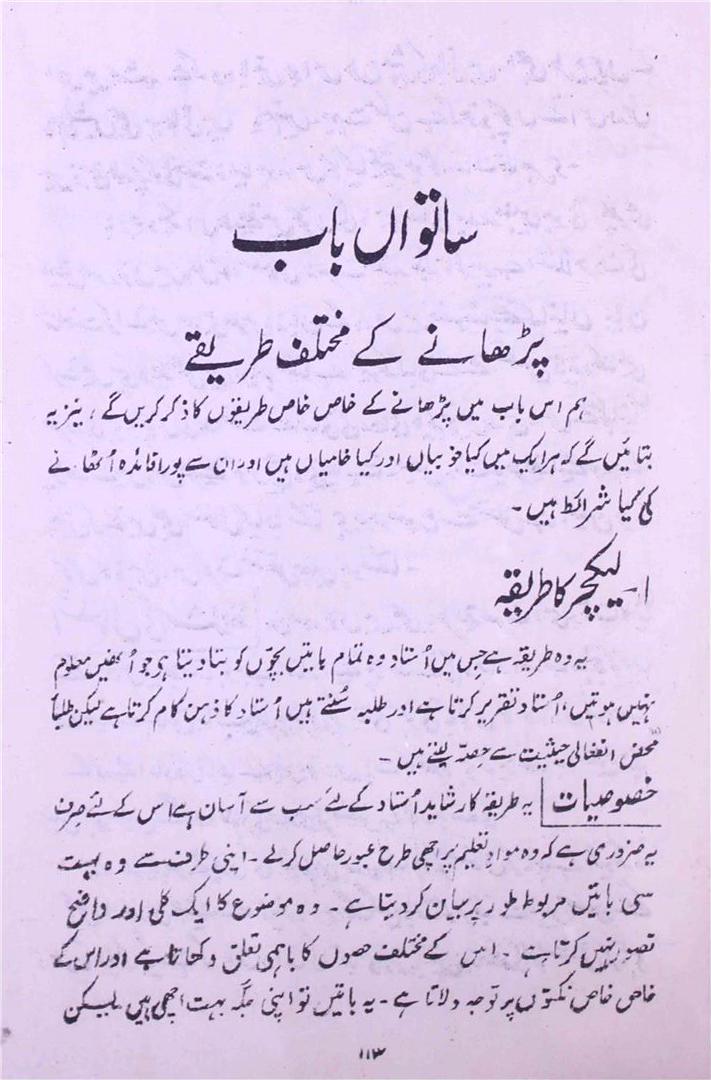 ساتواں باب
پڑھانے کے مختلف طریقے
ہم اس باب میں پڑھانے کے خاص خاص طریقوں کا ذکر کریں گے، نیز یہ
بتائیں گے کہ ہر ایک میں کیا خوبیاں اور کیا خامیاں ہیں اور ان سے پورا فائدہ اُٹھانے
کی کیا شرائط ہیں۔
۱۔ لیکچر کا طریقہ
یہ وہ طریقہ ہے جس میں اُستاد وہ تمام باتیں بچّوں کو بتا دیتا ہی جو اُنھیں معلوم
نہیں ہوتیں، اُستاد تقریر کرتا ہے اور طلبہ سُنتے ہیں اُستاد کا ذہن کام کرتا ہے لیکن طلبا
محض انفعالی حیثیت سے حصّہ لیتے ہیں۔
خصوصیات یہ طریقۂ کار شاید اُستاد کے لئے سب سے آسان ہے اس کے لئے صرف
یہ ضروری ہے کہ وہ موادِ تعلیم پر اچھی طرح عبور حاصل کرلے۔ اپنی طرف سے وہ بہت
سی باتیں مربوط طور پر بیان کر دیتا ہے۔ وہ موضوع کا ایک کلی اور واضح
تصور نہیں کرتا ہے۔ اس کے مختلف حصوں کا باہمی تعلق دکھاتا ہے اور اس کے
خاص خاص نکتوں پر توجہ دلاتا ہے۔ یہ باتیں تو اپنی جگہ بہت اچھی ہیں۔ لیکن
۱۱۳